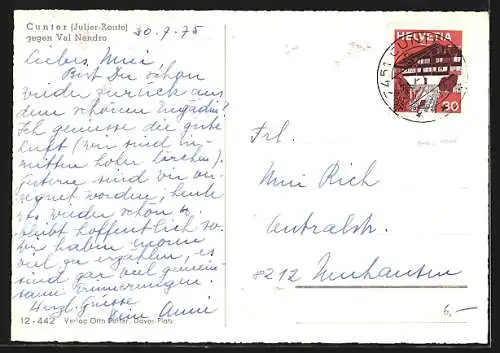 Cunter (Julier-Route)
gegen Val Nandro
30.7.75
Liebes Mini
Bist Du schon
wieder zurück aus
dem schönen Engadin?
Ich geniesse die gute
Luft (wir sind in-
mitten hoher Lärchen).
Gestern sind wir
regnet worden, heute
ist es wieder schön u.
bleibt hoffentlich so.
Wir haben enorm
viel zu erzählen, es
sind gar viel gemein-
same Erinnerungen.
Herzl. Grüsse
Dein Anni
12-442 Verlag Otto Furter, Davos-Platz
HELVETIA
30
Frl.
Mini Rich
Zentralstr.
8212 Neuhausen
6,-